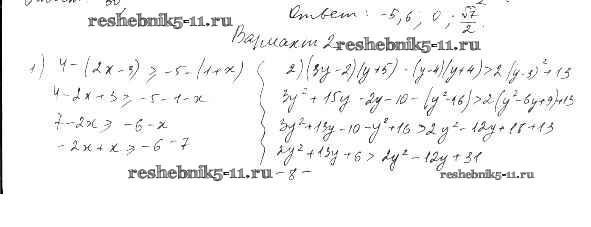 Ответ: -5,6; 0; √7/2.
reshebnik5-11.ru
Вариант 2
reshebnik5-11.ru
1) 4-(2x-3) ≥ -5-(1+x)
4-2x+3 ≥ -5-1-x
7-2x ≥ -6-x
-2x+x ≥ -6-7
2) (3y-2)(y+5) - (y-4)(y+4) > 2(y-3)²+13
3y²+15y-2y-10-(y²-16) > 2(y²-6y+9)+13
3y²+13y-10-y²+16 > 2y²-12y+18+13
2y²+13y+6 > 2y²-12y+31
reshebnik5-11.ru
-8-
reshebnik5-11.ru